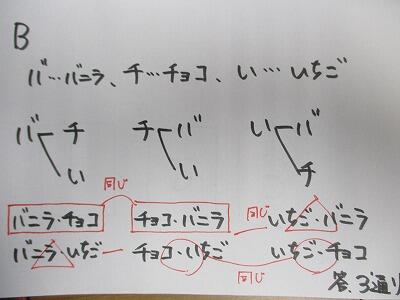 B
バ…バニラ、チ…チョコ、い…いちご
バ チ チ バ い バ
い い チ
同じ
バニラ・チョコ チョコ・バニラ 同じ いちご・バニラ
バニラ・いちご チョコ・いちご いちご・チョコ
同じ
答.3通り